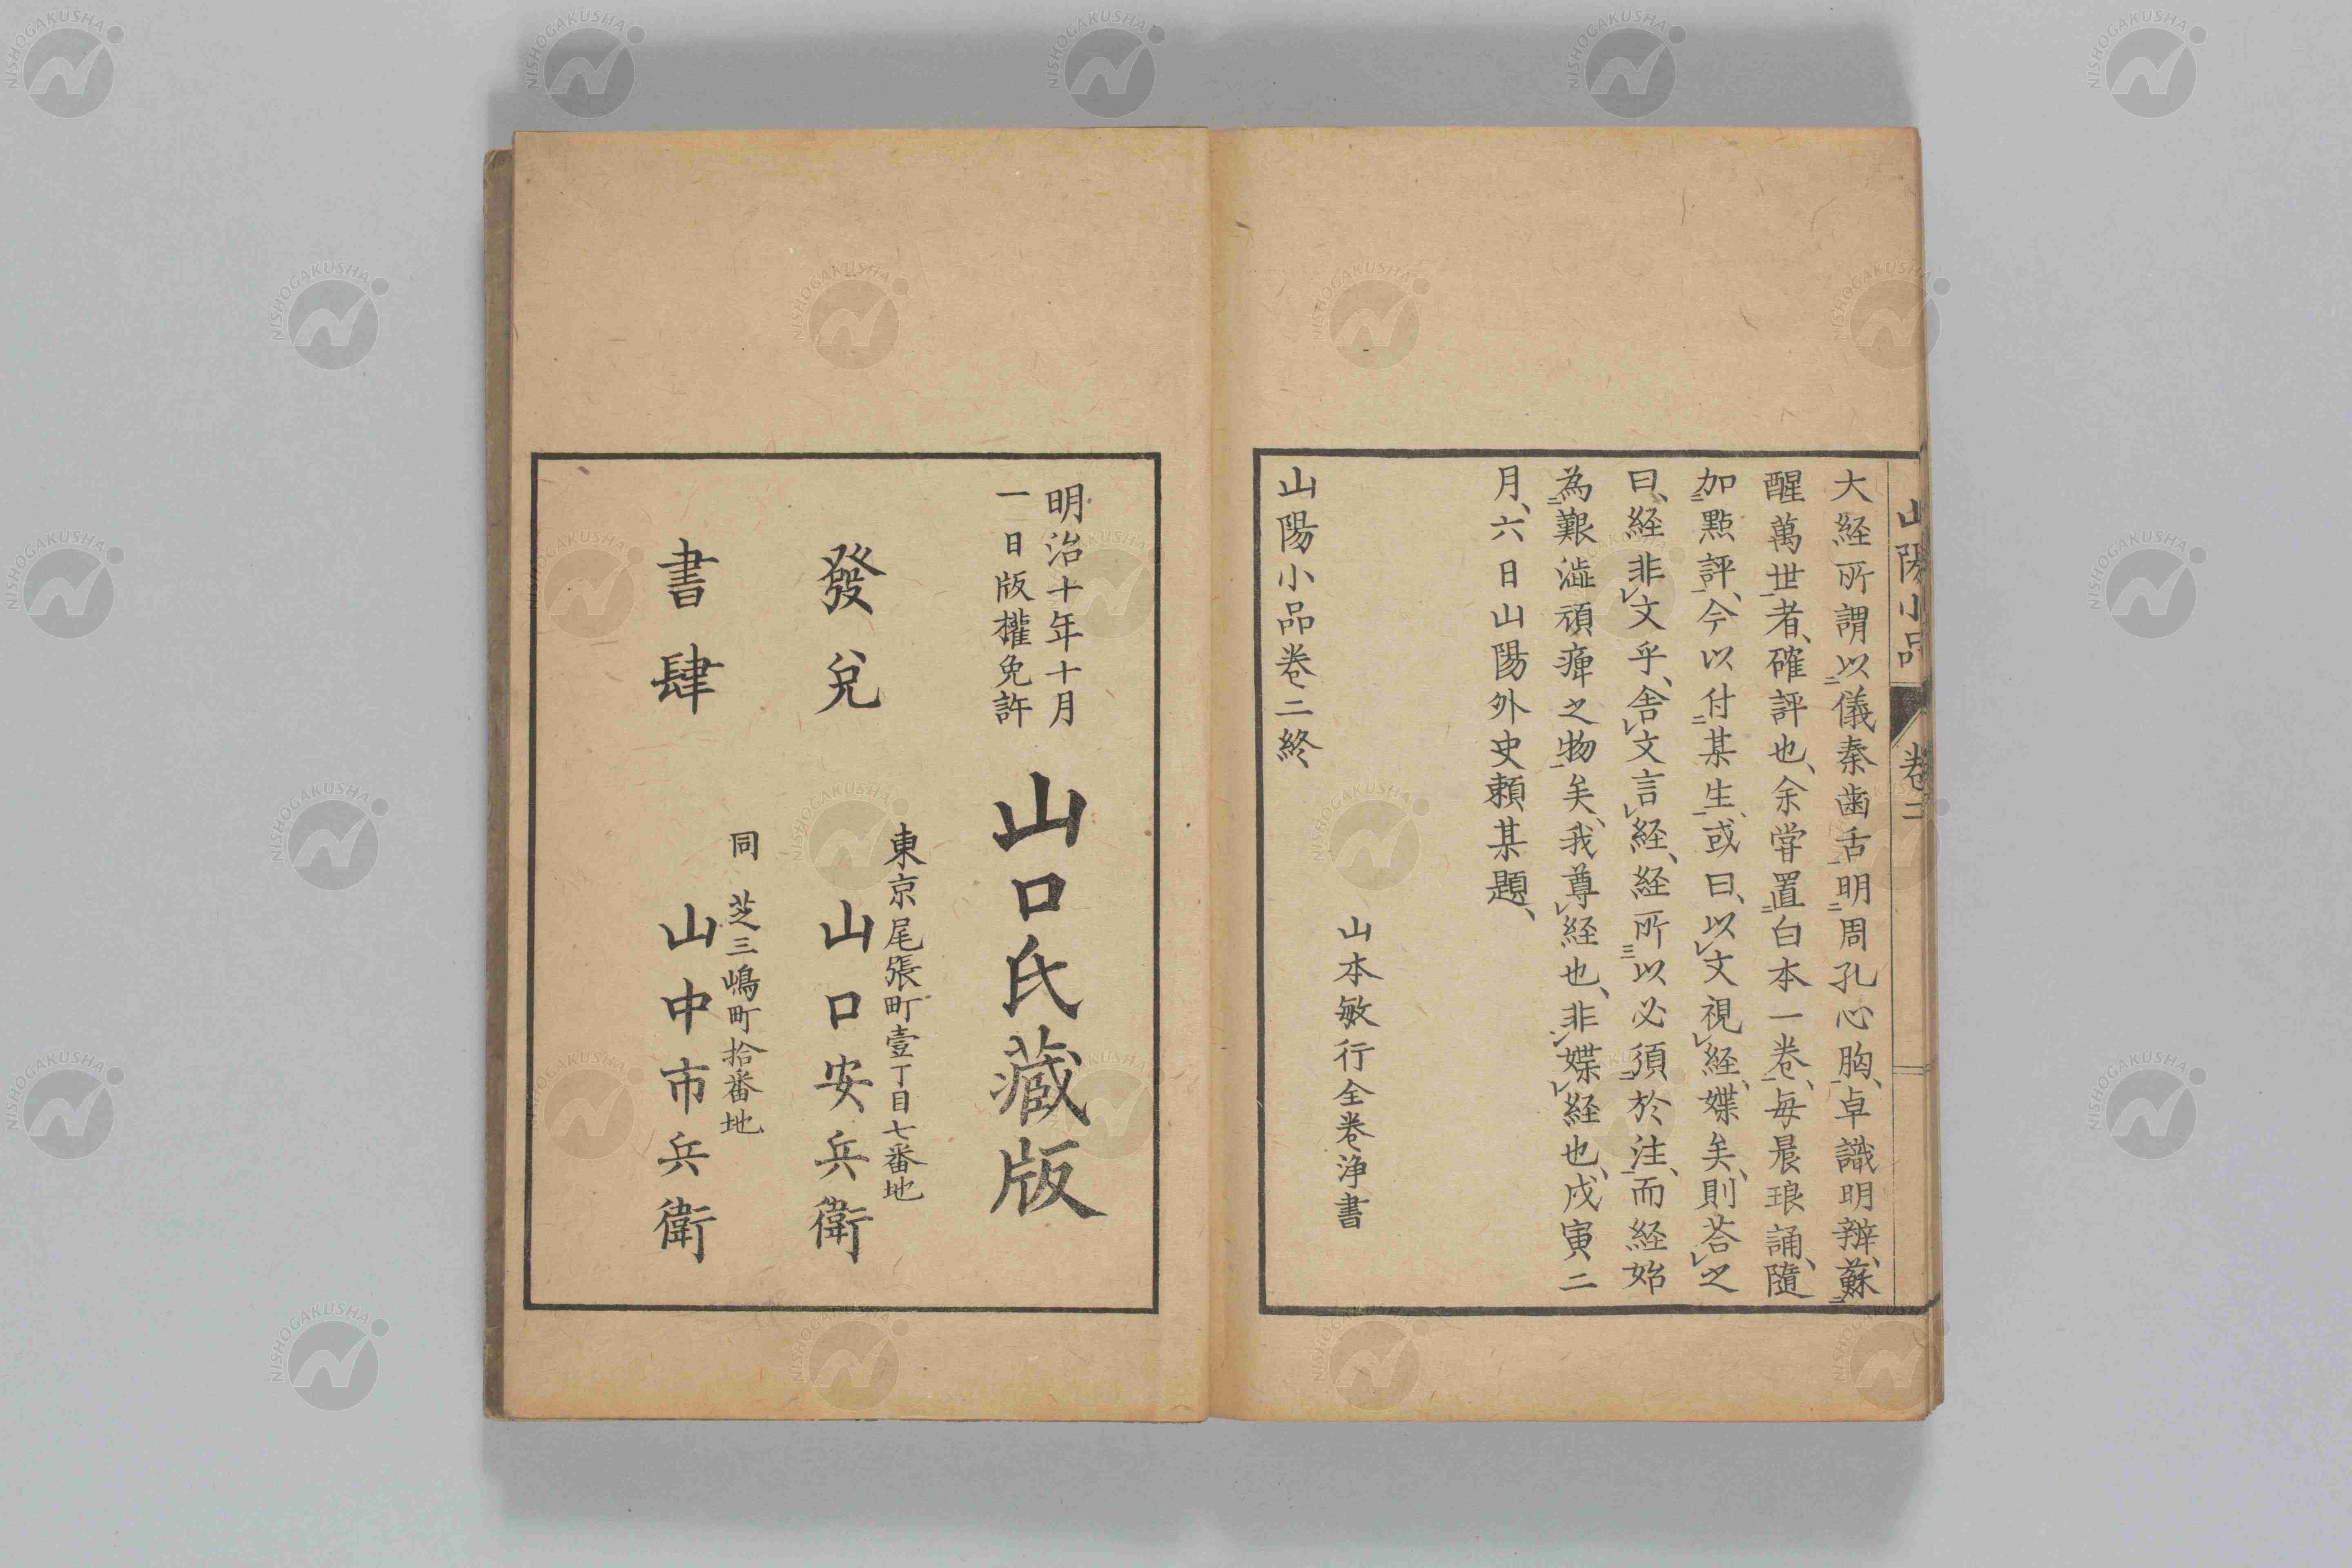 山陽小品 卷二
大経所謂以儀秦歯舌明周孔心胸、卓識明辨、蘇
醒萬世者、確評也、余嘗置白本一卷、每晨琅誦、隨
加點評、今以付某生、或曰、以文視経、媟矣、則荅之
曰、経非文乎、舍文言経、経所以必須於注、而経始
為艱澁頑痺之物矣、我尊経也、非媟経也、戊寅二
月、六日山陽外史賴某題、
山本敏行全卷浄書
山陽小品卷二終
明治十年十月
一日版權免許
山口氏藏版
發兌
書肆
東京尾張町壹丁目七番地
山口安兵衛
同 芝三嶋町拾番地
山中市兵衛
NISHOGAKUSHA